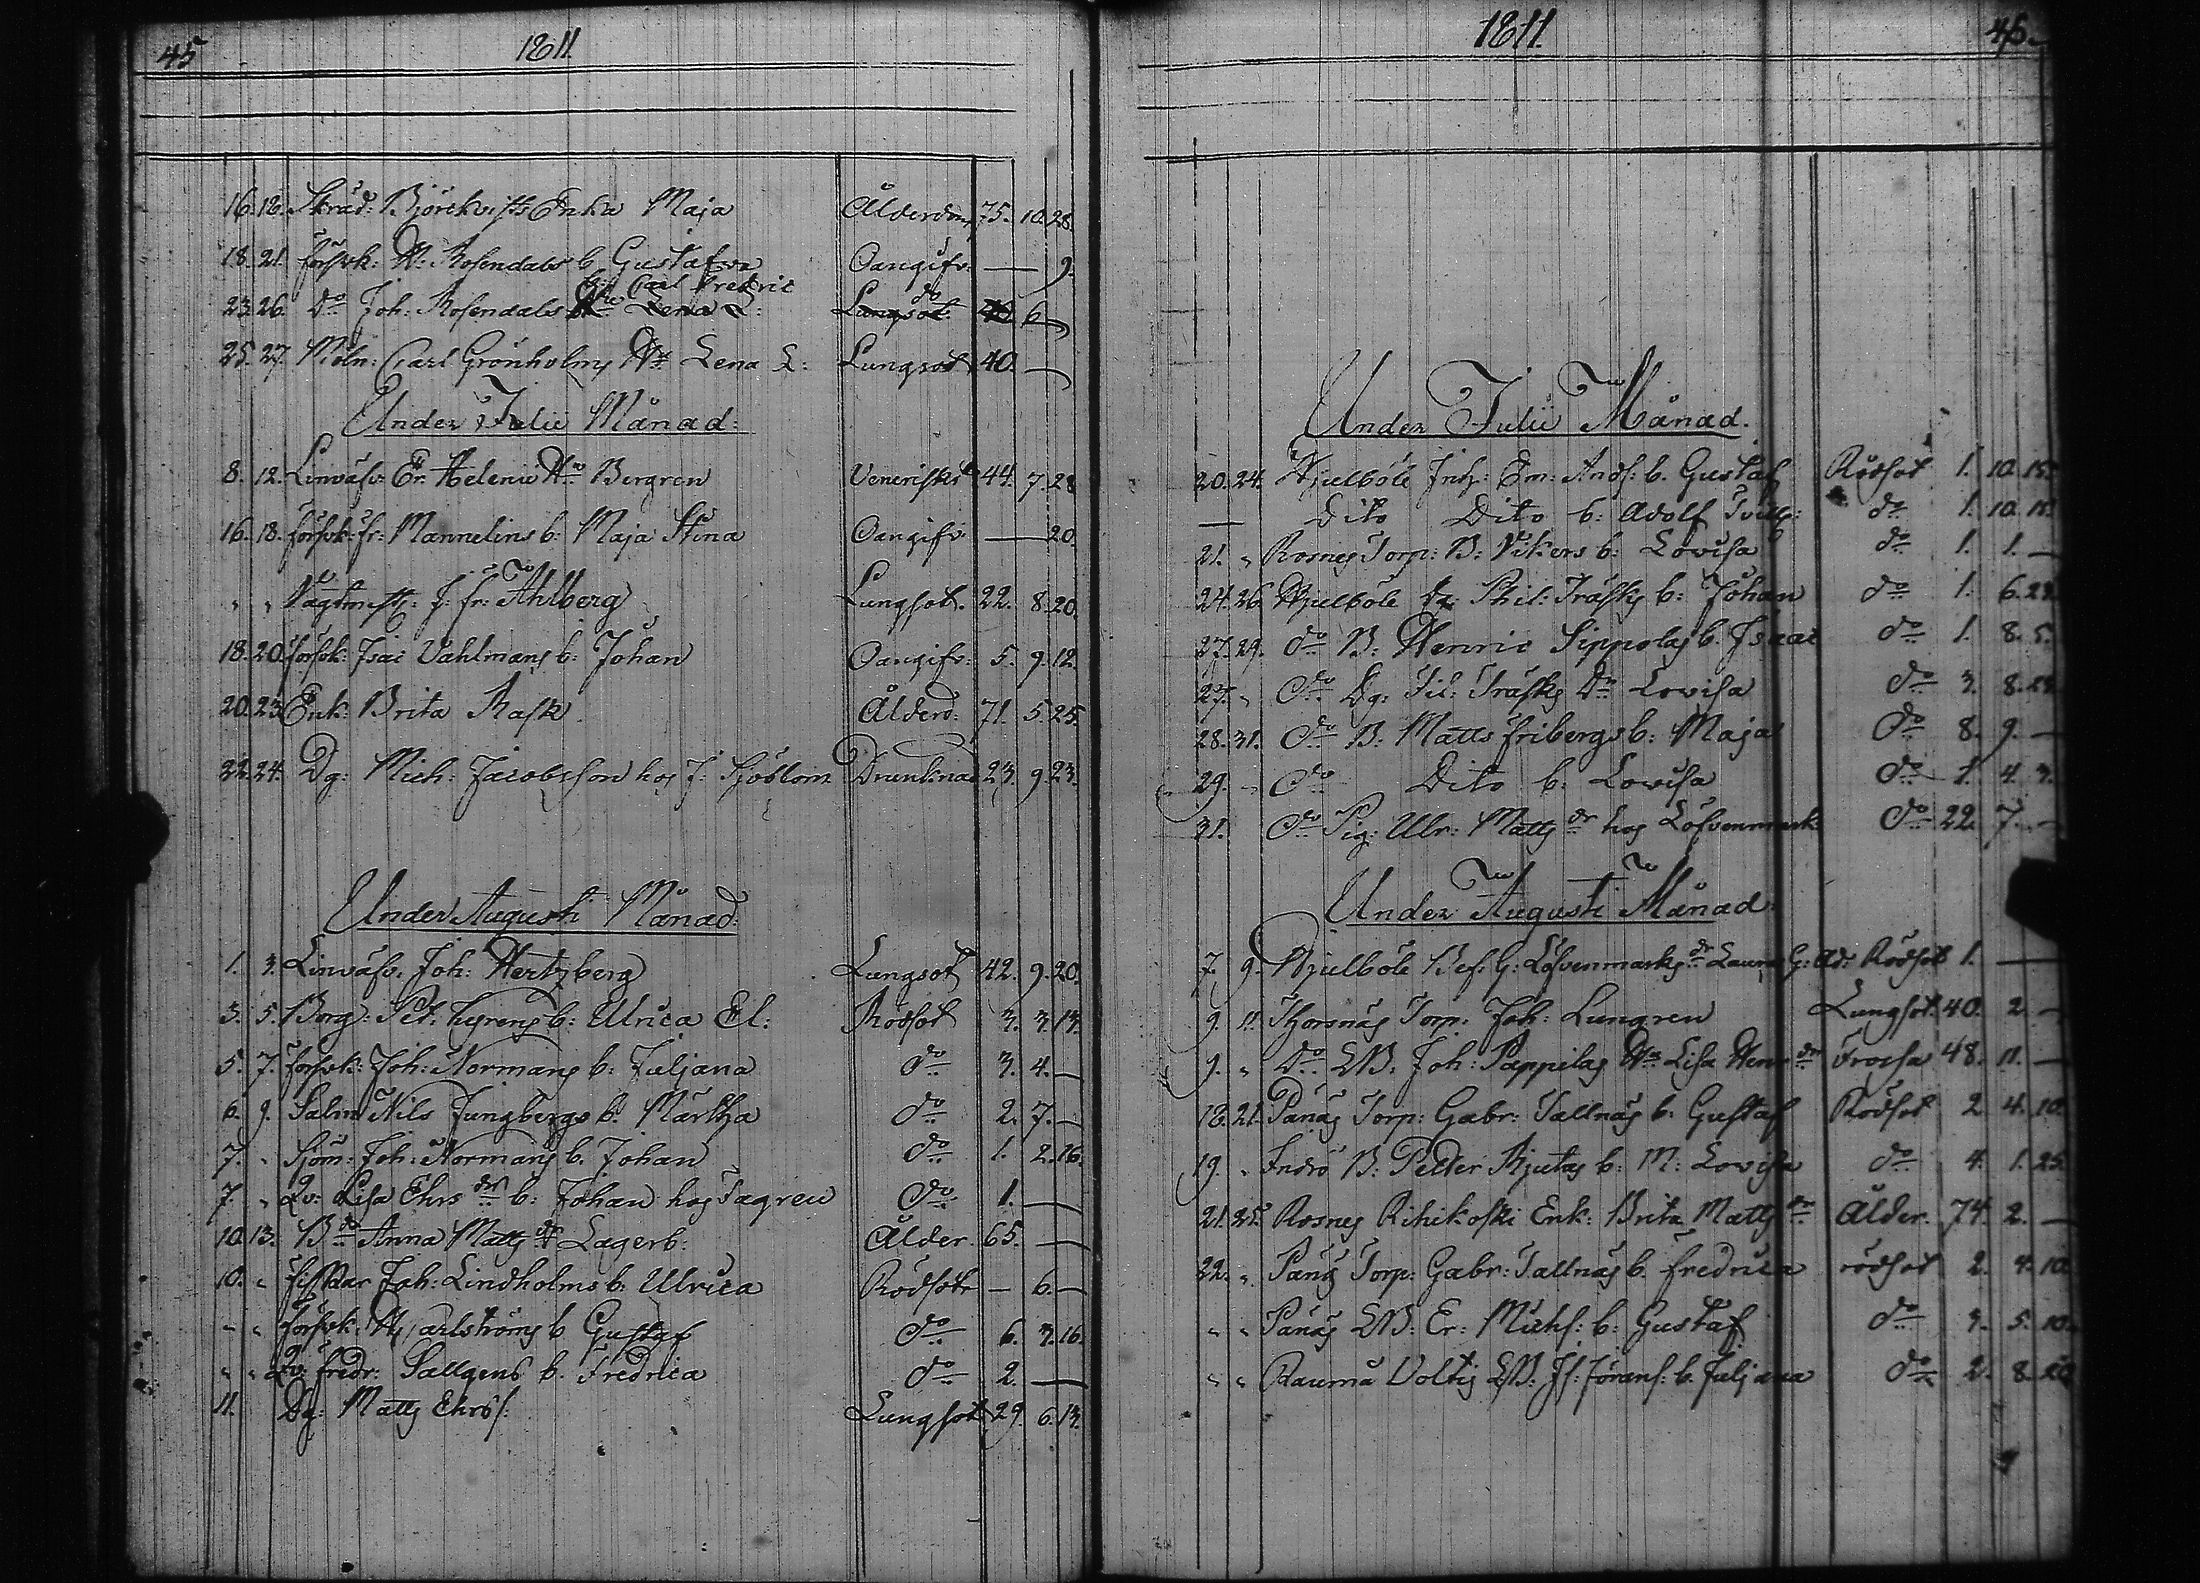 45 1811.
16. 18. Skräd: Björckvists Enka Maja Ålderdom 75. 10. 28.
18. 21. försvk: H: Rosendals b. Gustafva Oangifv: — 9.
b: Carl Fredric do
23. 26. Do Joh: Rosendals Hu Lena L: Lungsot 40. 6 —
25. 27. Möln: Carl Grönholms Hu Lena L: Lungsot 40. —
Under Julii Månad:
8. 12. Linväfv: Er. Helenii Hu Bergren Veneriska 44. 7. 28
16. 18. försvk: fr: Mannelins b: Maja Stina Oangifv — 20.
" " Vagtmst: J: fr: Åhlberg Lungsot. 22. 8. 20.
18. 20. försvk: Isac Vahlmans b: Johan Oangifv: 5. 9. 12.
20. 23. Enk: Brita Rask Ålderd: 71. 5. 25.
22. 24. Dg: Mich: Jacobsson hos J: Sjöblom Drunknad 23. 9. 23.
Under Augusti Månad:
1. 3. Linväfv. Joh: Hertzberg Lungsot 42. 9. 20.
3. 5. Borg: Pet: b: Ulrica El: Rödsot 3. 3. 13.
5. 7. försvk: Joh: Normans b: Juljana do 3. 4. —
6. 9. Salm Nils Jungbergs b. Märtha do 2. 7. —
7. " Sjöm: Joh: Normans b. Johan do 1. 2. 16.
7. " Qv: Lisa Ehrs dr b: Johan hos Tagren do 1. —
10. 13. B Anna Matts dr Lagerb: Ålder. 65. —
10. " fiskar Joh: Lindholms b: Ulrica Rödsot — 6. —
" " försvk: Hjarlströms b Gustaf do 6. 3. 16.
" " Qv: fredr: Sallgens b. Fredrica do 2. —
11. Dg: Matts Ehrs: Lungsot 29. 6. 13.
1811. 45.
Under Julii Månad.
20. 24. Hjulböle Inh: Em: Ands: b. Gustaf Rödsot 1. 10. 15.
— Dito Dito b: Adolf Tvill: do 1. 10. 15.
21. " Rosnes Torp: B: Vikers b: Lovisa do 1. 1. —
24. 26. Hjulböle Phil: Träsks b: Johan do 1. 6. 29.
27. 29. do B: Henric Sippolas b. Isaac do 1. 8. 5.
27. " do Dg: Träsks Dr Lovisa do 3. 8. 29.
28. 31. do B: Matts fribergs b: Maja do 8. 9. —
29. " do Dito b: Lovisa do 1. 4. 3.
31. do Pig: Ulr: Matts dr hos Löfvenmark do 22. 7. —
Under Augusti Månad:
7. 9. Hjulböle Bef: G: Löfvenmarks dr Laura G: Ad: Rödsot 1. —
9. 11. Thorsnäs Torp: Joh: Lungren Lungsot. 40. 2. —
9. " Do LB: Joh: Pappilas Hu Lisa Henr dr Frossa 48. 11. —
18. 21. Pånäs Torp: Gabr: Tallnäs b: Gustaf Rödsot 2. 4. 10.
19. " Inderö B: Petter Rjutas b: M: Lovisa do 4. 1. 25.
21. 25. Rosnes Rihikoski Enk: Brita Matts dr Ålder. 74. 2. —
22. " Pånäs Torp: Gabr: Tallnäs b. fredrica rödsot 2. 4. 10.
" " Pånäs LB: Er: Michs: b: Gustaf do 3. 5. 10.
" " Rauma Voltis LB: Js: Jörans: b. Juljana do 2. 8. 20.